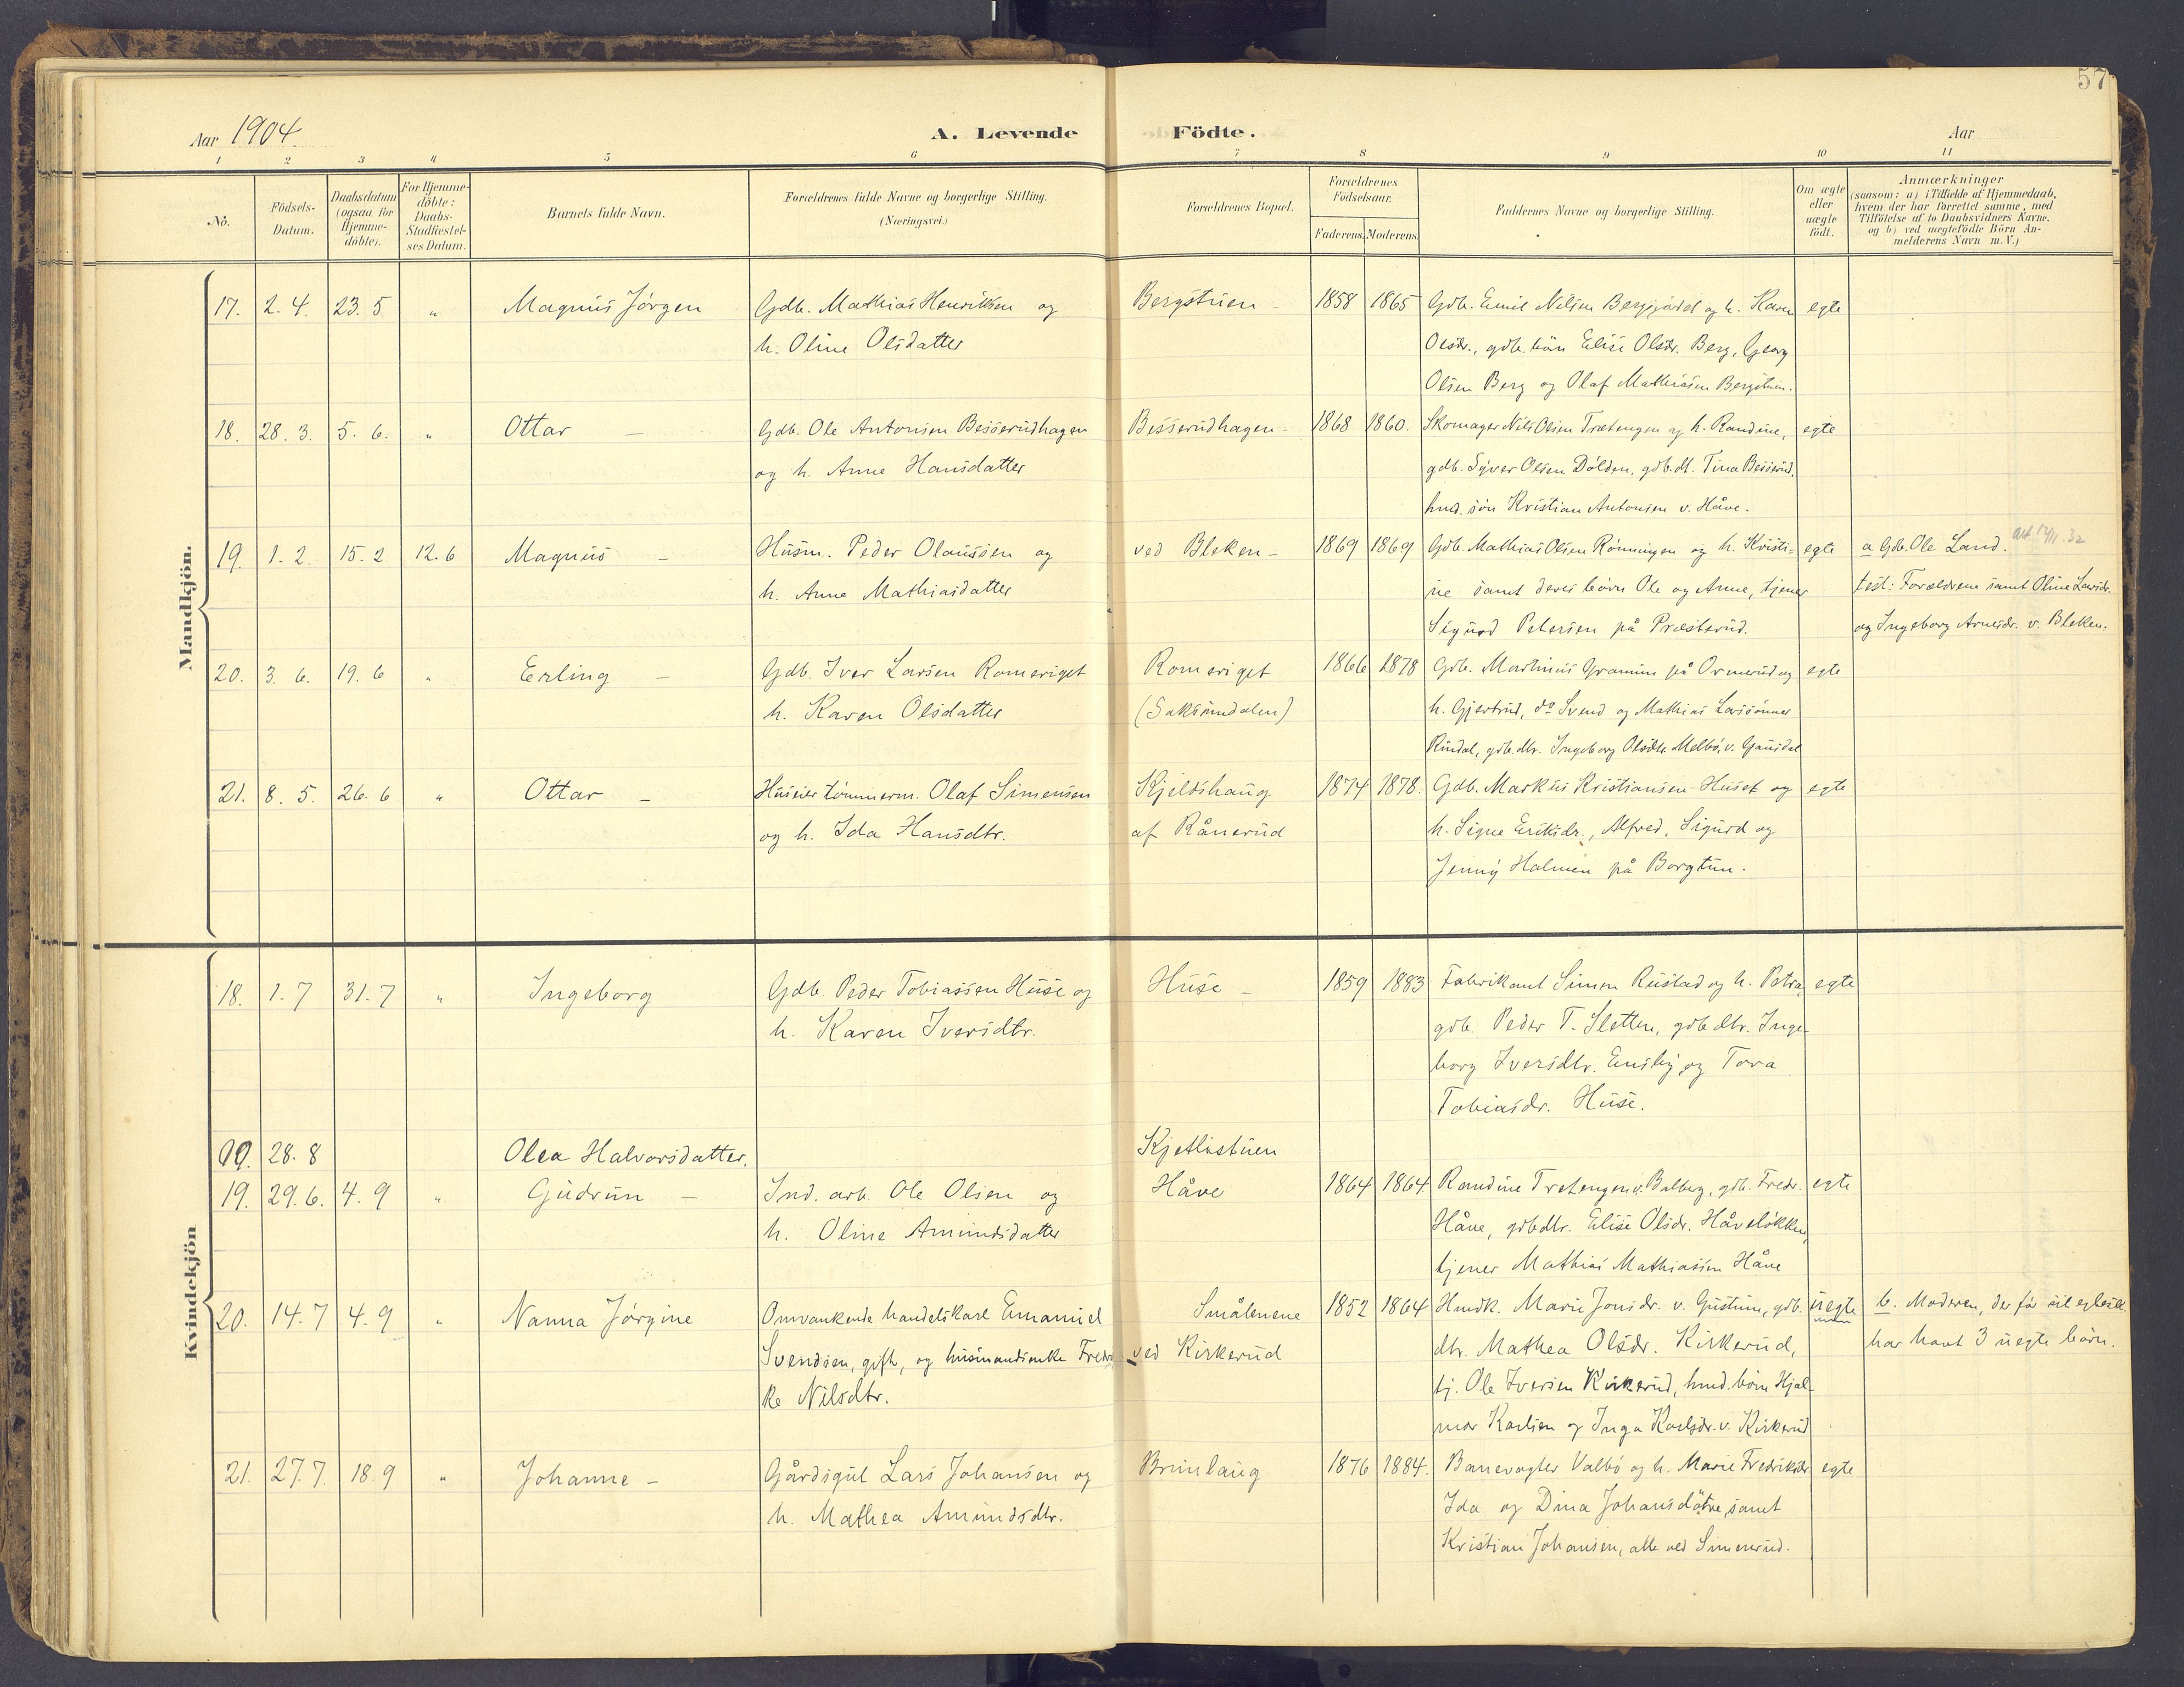 57
Aar 1904.
A. Levende Födte.
Aar
1 2 3 4 5 6 7 8 9 10 11
No.
Födsels-
Datum.
Daabsdatum
(ogsaa for
Hjemme-
döbte).
For Hjemme-
döbte:
Daabs-
Stadfæstel-
ses Datum.
Barnets fulde Navn.
Forældrenes fulde Navne og borgerlige Stilling.
(Næringsvei.)
Forældrenes Bopæl.
Forældrenes
Födselsaar.
Faderens. Moderens.
Faddernes Navne og borgerlige Stilling.
Om ægte
eller
uægte
födt.
Anmærkninger
(saasom: a) i Tilfælde af Hjemmedaab,
hvem der har forrettet samme, med
Tilföielse af to Daabsvidners Navne.
og b) ved uægtefödte Börn An-
melderens Navn m. V.)
Mandkjön.
17. 2. 4. 23. 5 " Magnus Jörgen Gdb. Mathias Henriksen og Bergstuen - 1858 1865 Gdb. Emil Nilsen Berggårdet og h. Karen egte
h. Oline Olsdatter Olsdr., gdb. börn Elise Olsdr. Berg, Georg
Olsen Berg og Olaf Mathiasen Bergstuen.
18. 28. 3. 5. 6. " Ottar - Gdb. Ole Antonsen Besserudhagen Besserudhagen - 1868 1860. Skomager Nils Olsen Trætengen og h. Randine, egte
og h. Anne Hansdatter gdb. Syver Olsen Dölden, gdb. dt. Tina Besserud,
hmd. sön Kristian Antonsen v. Håve.
19. 1. 2. 15. 2 12. 6 Magnus - Husm. Peder Olaussen og ved Bleken - 1869 1869 Gdb. Mathias Olsen Rönningen og h. Kristi- egte a Gdb. Ole Land.
h. Anne Mathiasdatter ne samt deres börn Ole og Anne, tjener test: Forældrene samt Oline Larsdr.
Sigurd Petersen på Præsterud. og Ingeborg Arnesdr. v. Bleken.
20. 3. 6. 19. 6 " Erling - Gdb. Iver Larsen Romeriget Romeriget 1866 1878 Gdb. Martinus Gramum på Ormerud og egte
h. Karen Olsdatter (Saksumdalen) h. Gjertrud, do Svend og Mathias Larssönner
Rindal, gdb. dtr. Ingeborg Olsdtr. Melbö, v. Gausdal
21. 8. 5. 26. 6 " Ottar - Huseier tömmerm. Olaf Simensen Kjeldshaug 1874 1878. Gdb. Markus Kristiansen Huset og egte
og h. Ida Hansdtr. af Rånerud h. Signe Eriksdr., Alfred, Sigurd og
Jenny Holmen på Borgtun.
Kvindekjön
18. 1. 7 31. 7 " Ingeborg Gdb. Peder Tobiassen Huse og Huse - 1859 1883 Fabrikant Simen Rustad og h. Petra, egte
h. Karen Iversdtr. gdb. Peder T. Sletten, gdb dtr. Inge-
borg Iversdtr. Ensby, og Tora
Tobiasdr. Huse.
19. 28. 8 " Olea Halvorsdatter. Kjetlistuen
19. 29. 6. 4. 9 " Gudrun - Ind. arb. Ole Olsen og Håve 1864 1864. Randine Tretengen v. Balberg, gdb. Fredr. egte
h. Oline Amundsdatter Håve, gdb dtr. Elise Olsdr. Håvelökken,
tjener Mathias Mathiassen Håve
20. 14. 7 4. 9 " Nanna Jörgine Omvankende handelskarl Emanuel Smålenene 1852 1864 Hmdk. Marie Jonsdr. v. Gustum, gdb. uegte b. Moderen, der før
Svendsen, gift, og husmandsenke Fredri ved Kirkerud dtr. Mathea Olsdr. Kirkerud, har havt 3 uegte börn.
ke Nilsdtr. tj. Ole Iversen Kirkerud, hmd. börn Hjal-
mar Karlsen og Inga Karlsdr. v. Kirkerud
21. 27. 7. 18. 9 " Johanne - Gårdsgut Lars Johansen og Brunlaug 1876 1884. Banevogter Valbö og h. Marie Fredriksdr egte
h. Mathea Amundsdtr. Ida og Dina Johansdötre, samt
Kristian Johansen, alle ved Simenrud.